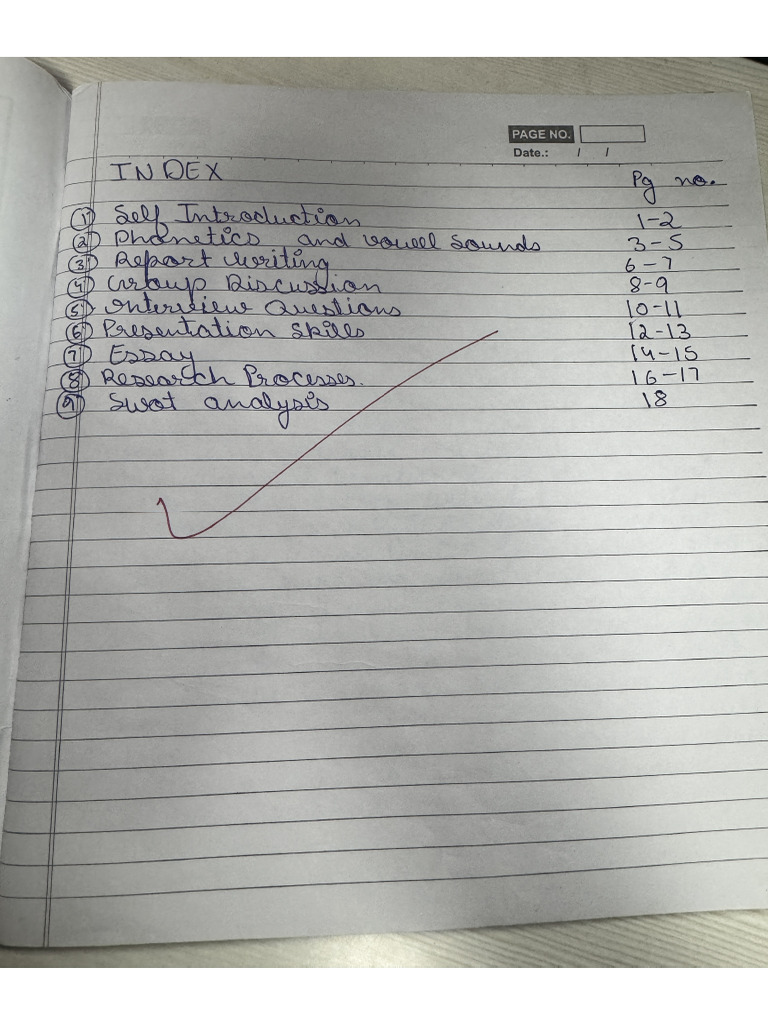 PAGE NO.
Date.: / /
INDEX Pg no.
① Self Introduction 1-2
② Phonetics and vowell sounds 3-5
③ Report writing 6-7
④ Group Discussion 8-9
⑤ Interview Questions 10-11
⑥ Presentation Skills 12-13
⑦ Essay 14-15
⑧ Research Processes. 16-17
⑨ Swot analysis 18